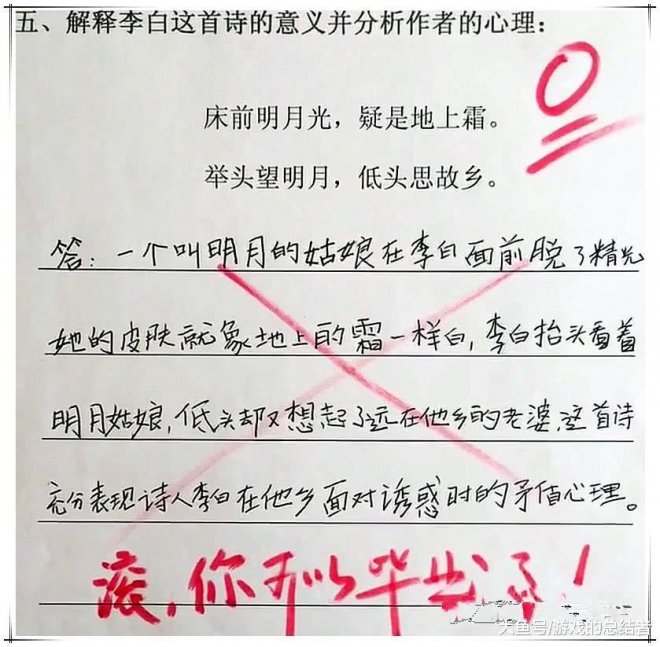 五、解释李白这首诗的意义并分析作者的心理：
0
床前明月光，疑是地上霜。
举头望明月，低头思故乡。
答：一个叫明月的姑娘在李白面前脱了精光
她的皮肤就象地上的霜一样白，李白抬头看着
明月姑娘，低头却又想起了远在他乡的老婆，这首诗
充分表现诗人李白在他乡面对诱惑时的矛盾心理。
滚，你可以毕业了！
大鱼号/游戏的总结者